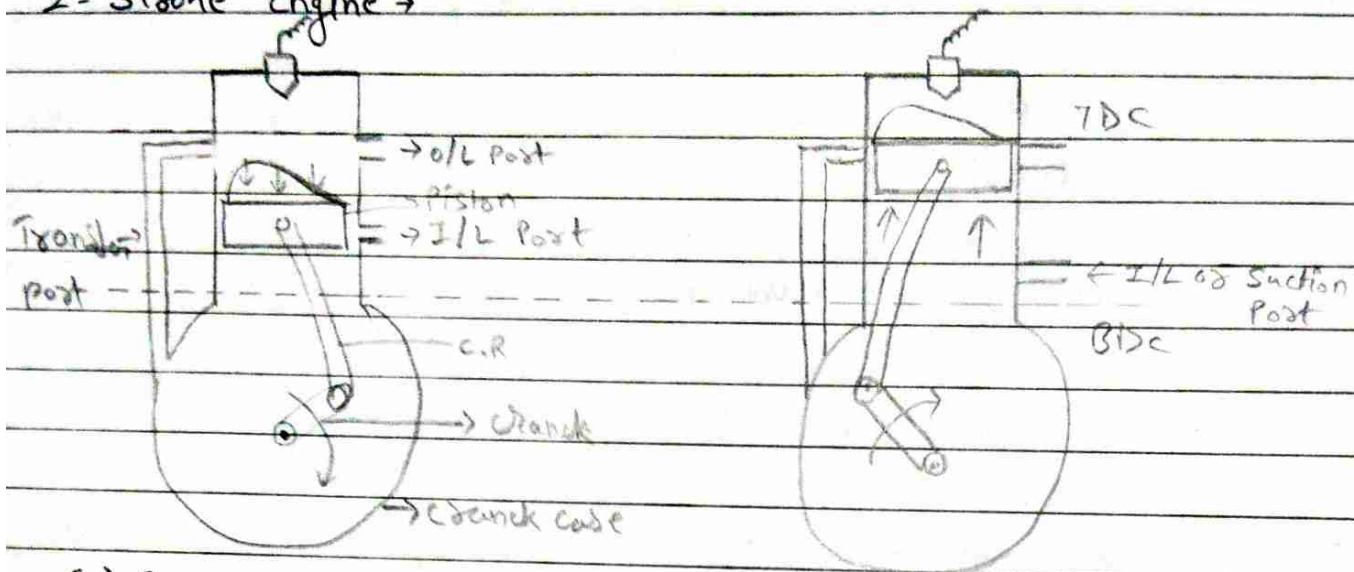 2- Stroke Engine →
→ O/L Port
Piston
→ I/L Port
Transfer
port
C.R
→ Crank
→ Cranck case
TDC
← I/L or Suction
Port
BDC